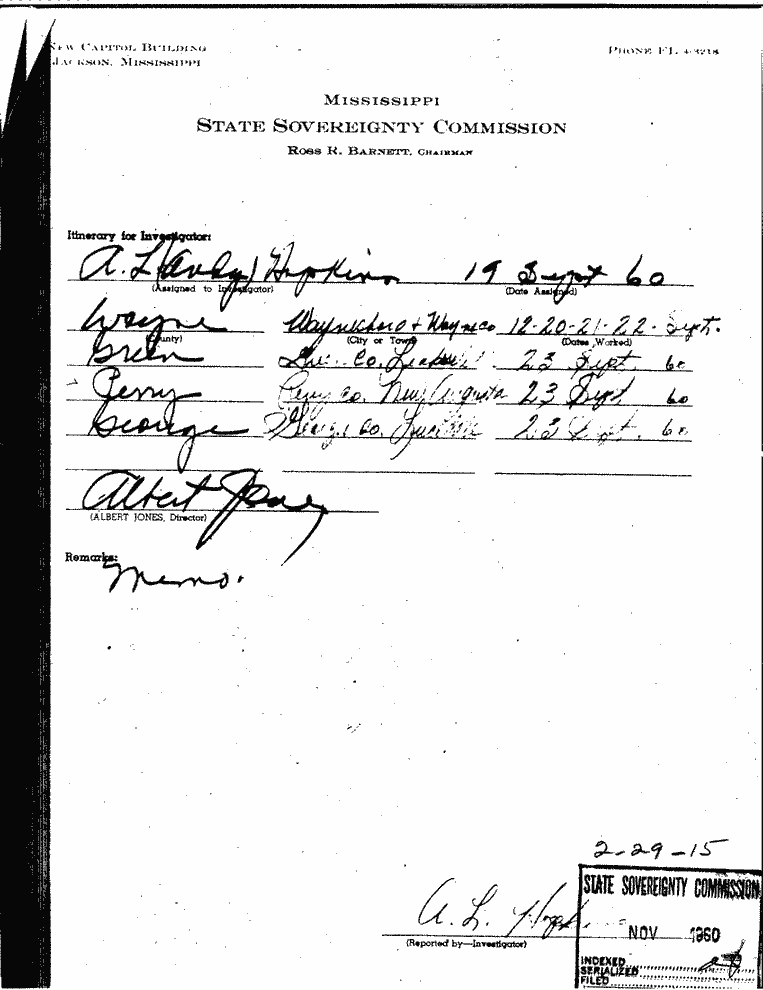 NEW CAPITOL BUILDING
JACKSON, MISSISSIPPI
PHONE FL 4-3218
MISSISSIPPI
STATE SOVEREIGNTY COMMISSION
ROSS R. BARNETT, CHAIRMAN
Itinerary for Investigator:
A. L. (Andy) Hopkins 19 Sept 60
(Assigned to Investigator) (Date Assigned)
Wayne Waynesboro + Wayne Co 20-21-22- Sept.
(County) (City or Town) (Dates Worked)
Green Co. 23 Sept. 60
Perry Perry Co. New Augusta 23 Sept 60
George Co. 23 Sept. 60
Albert Jones
(ALBERT JONES, Director)
Remarks:
Memo.
2-29-15
STATE SOVEREIGNTY COMMISSION
A. L. Hopkins
NOV 1960
(Reported by—Investigator)
INDEXED
SERIALIZED
FILED